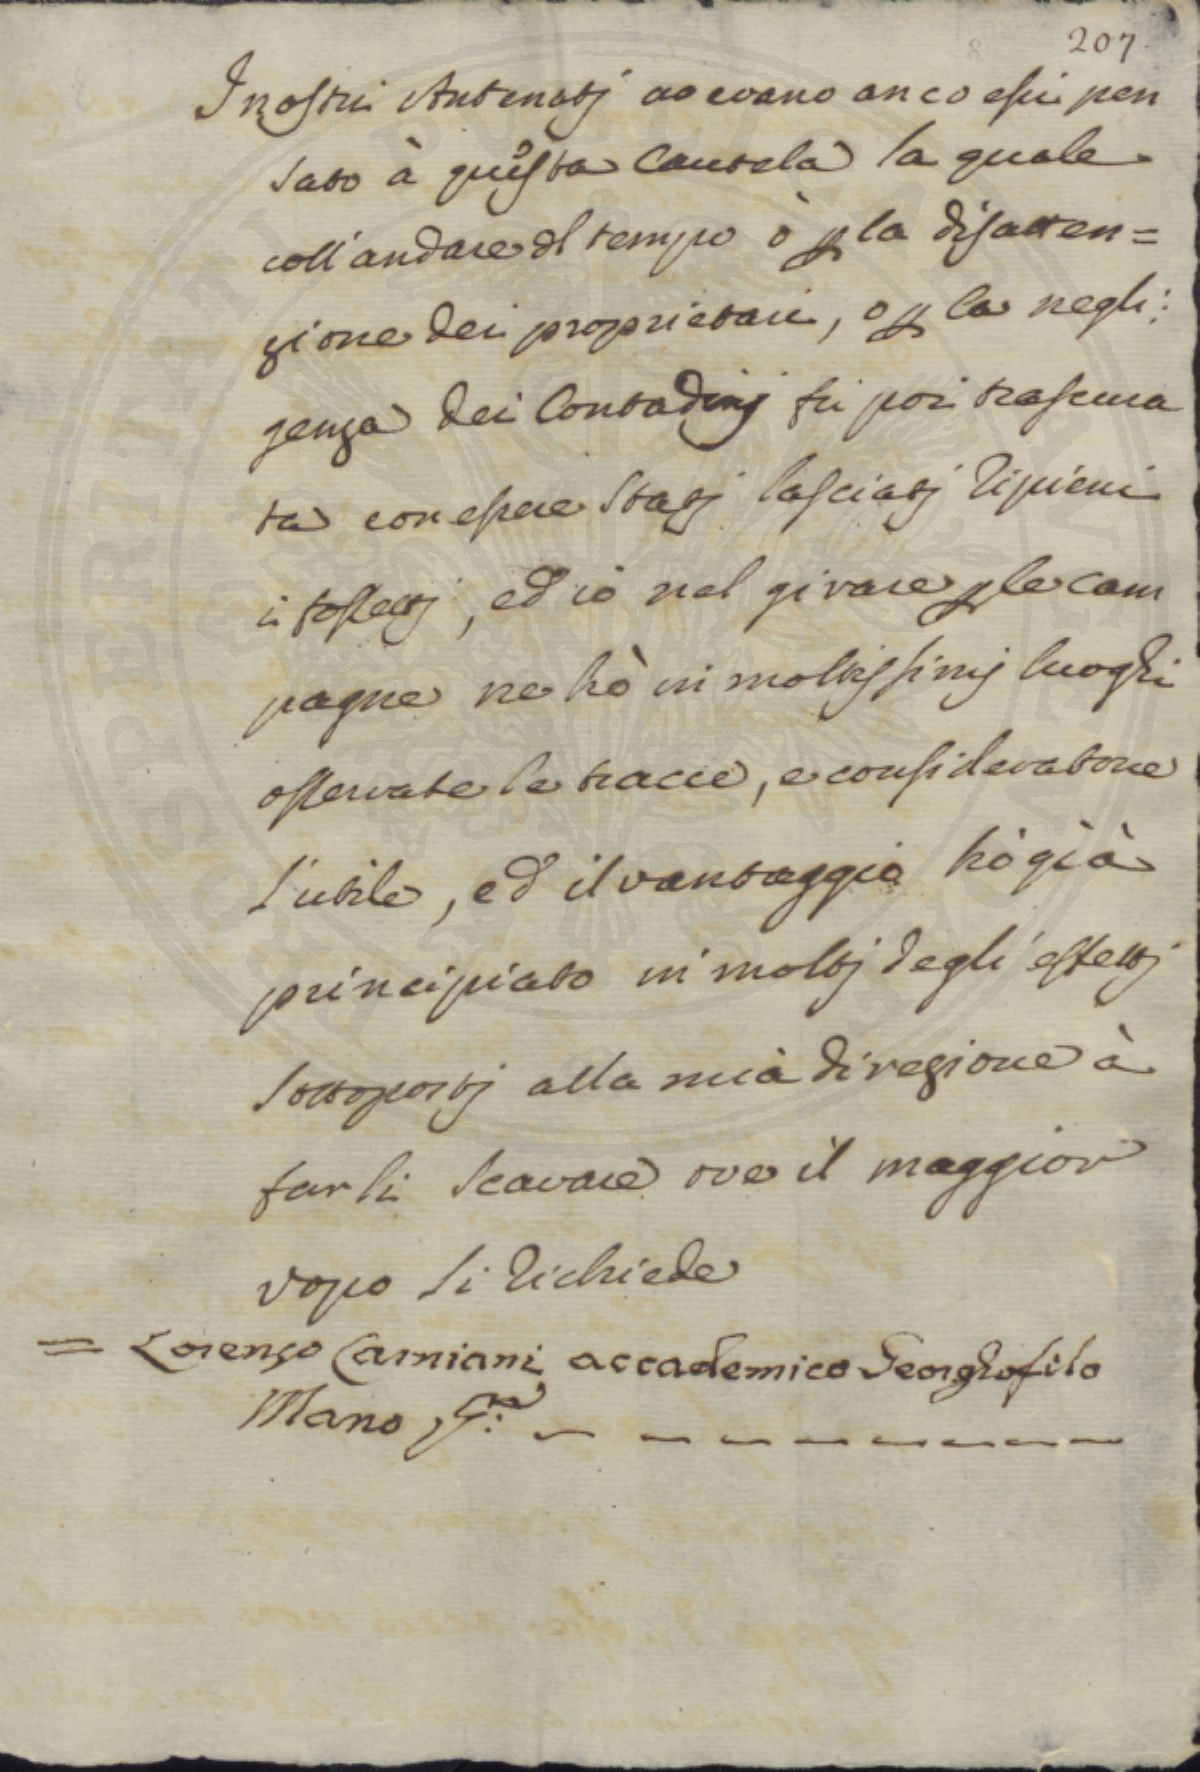 207
I nostri Antenatj avevano anco essi pen
sato à questa Cautela la quale
coll'andare del tempo ò p la disatten=
zione dei proprietari, o p la negli:
genza dei Contadinj fù poi trascura
ta con essere statj lasciatj ripieni
i fossettj, ed io nel girare p le cam
pagne ne hò in moltissimj luoghi
osservate le tracce, e consideratone
l'utile, ed il vantaggio hò già
principiato in moltj degli effettj
sottopostj alla mia direzione à
farli scavare ove il maggior
vopo si richiede
= Lorenzo Camiani accademico Georghofilo
Mano
PVBLICA
PROSPERITATI